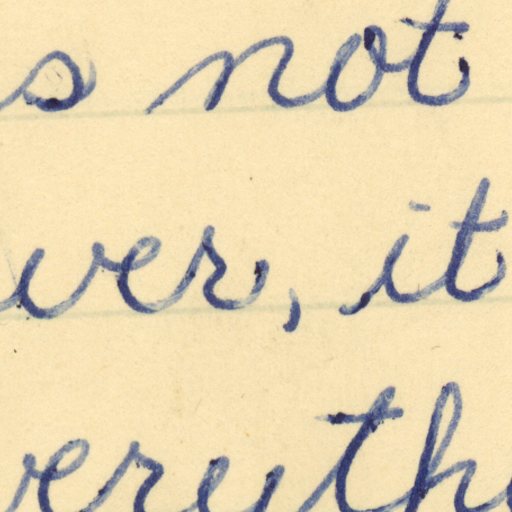 s not
ver, it
veryth